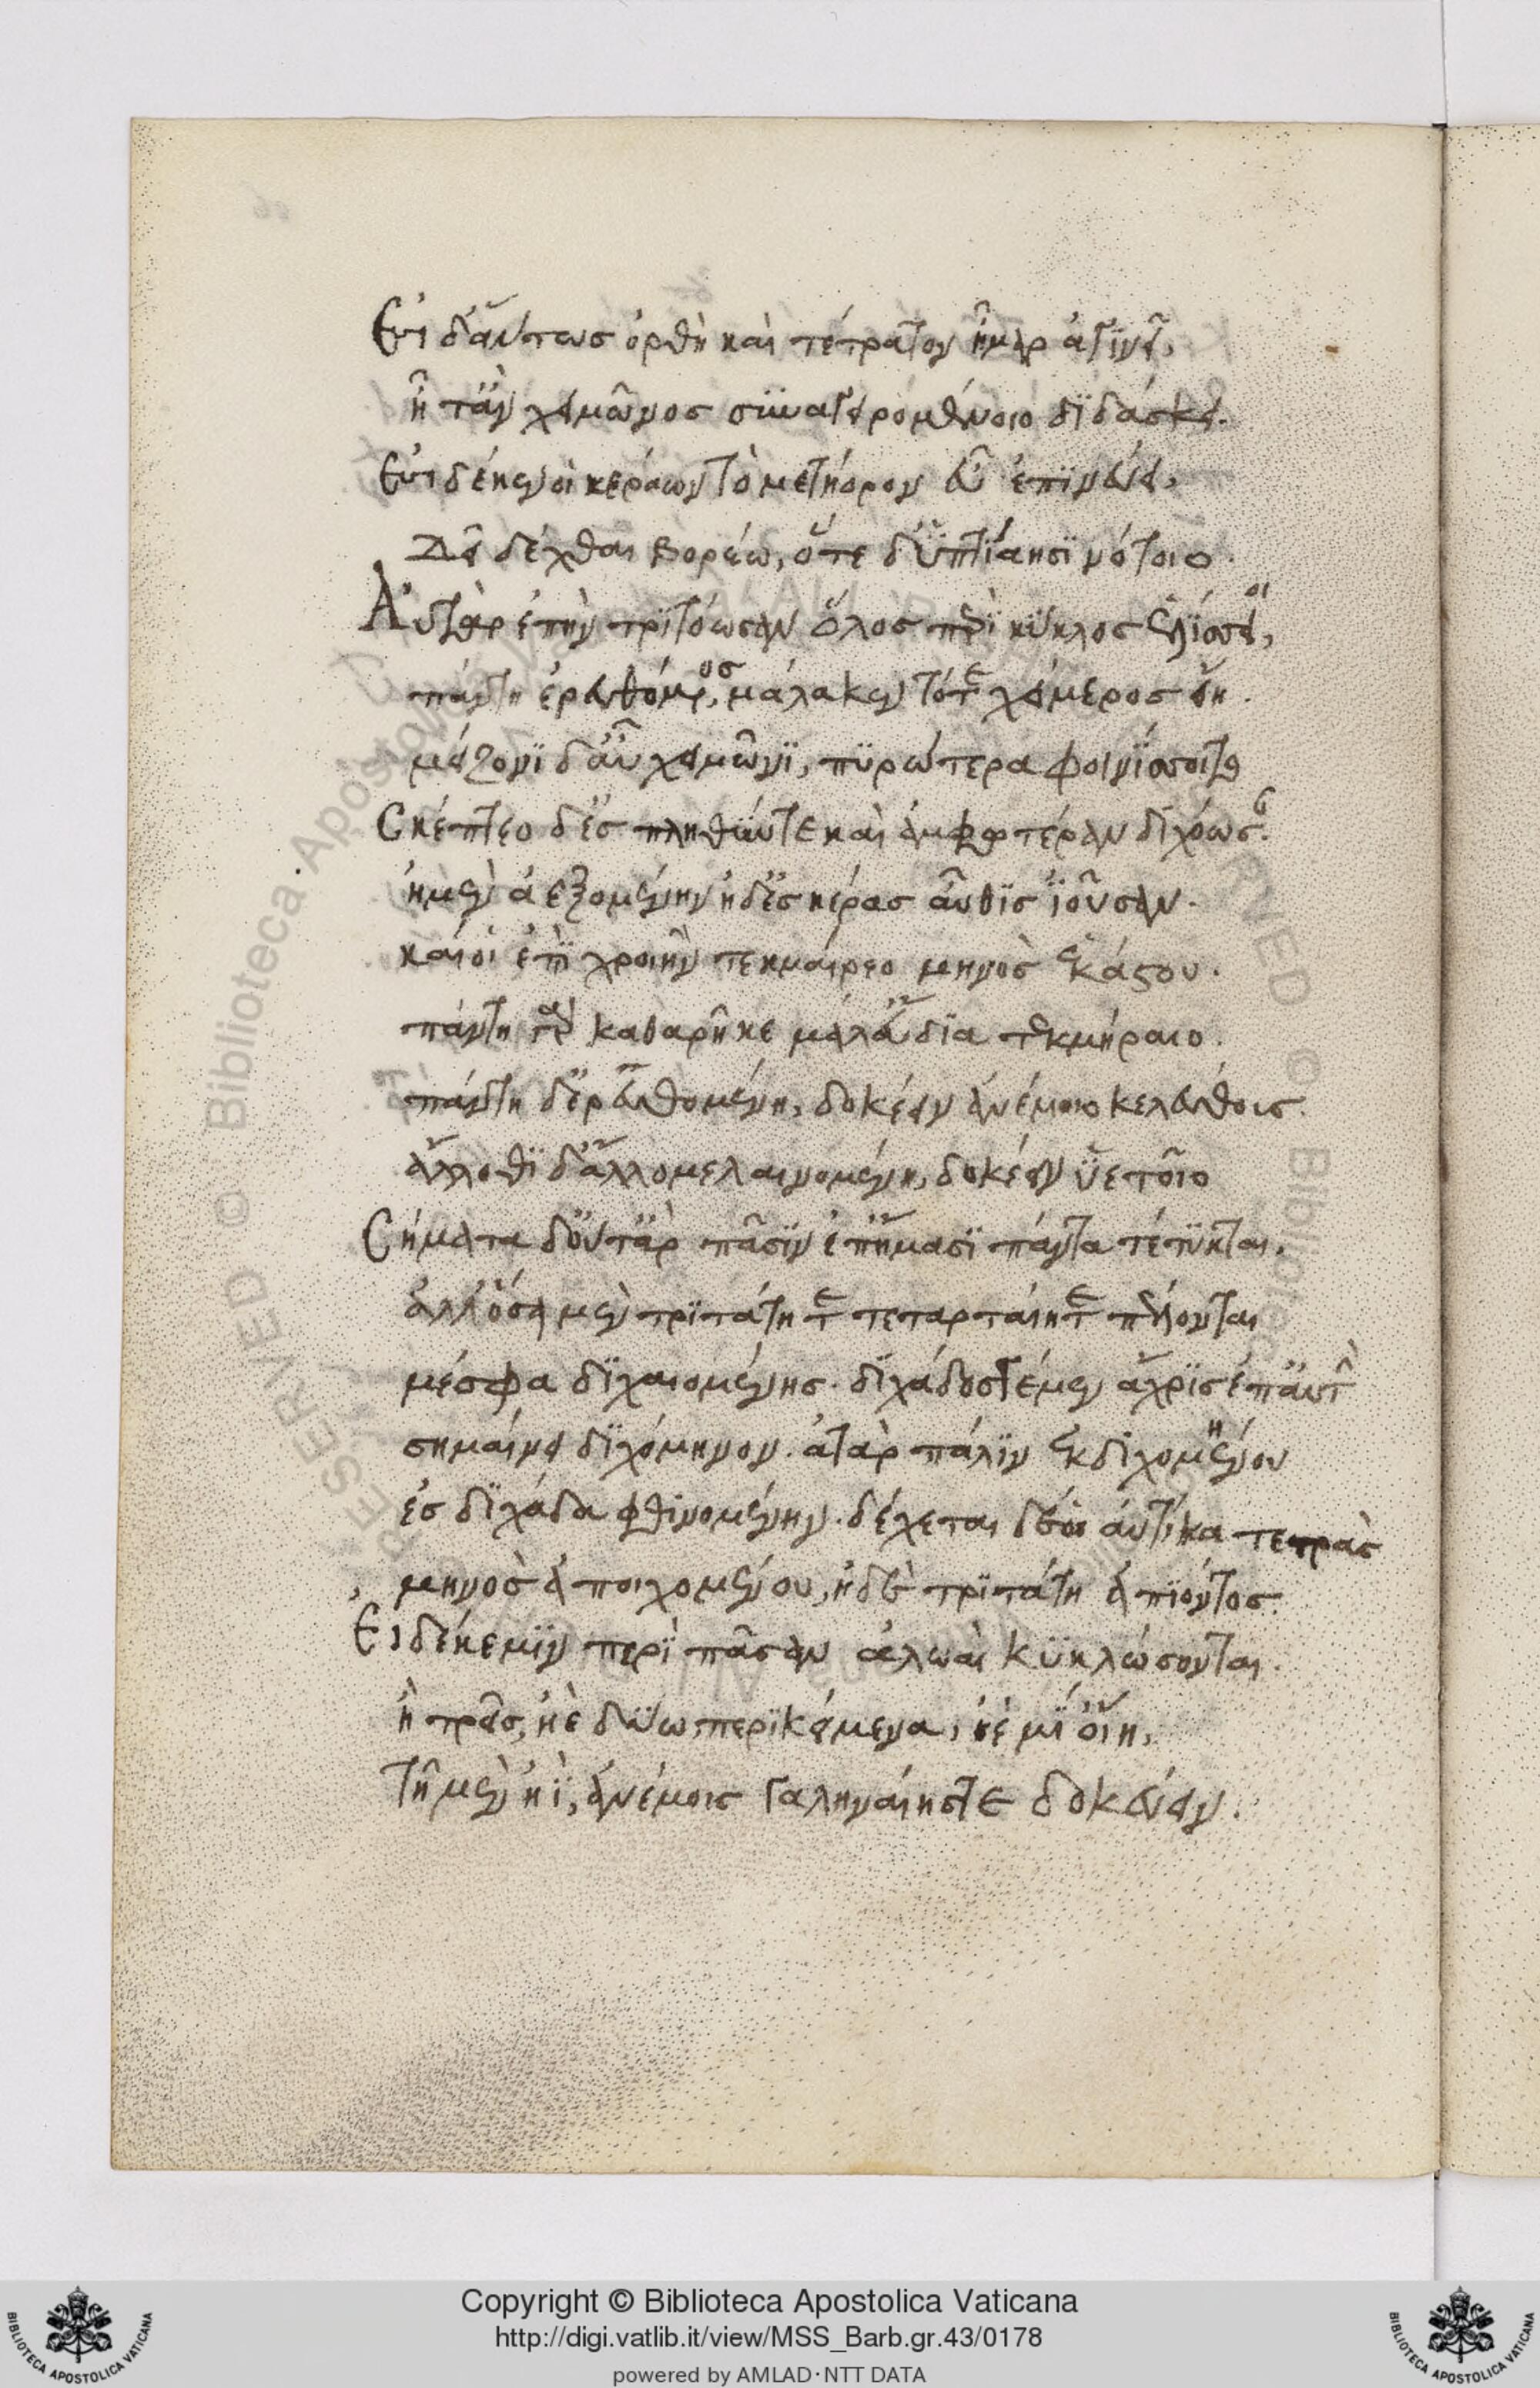 Εἰ δ' αὕτως ὀρθὴ καὶ τέτρατον ἦμαρ ἀγινεῖ,
ἦ τ' ἂν χειμῶνος συναγειρομένοιο διδάσκει.
Εἰ δέ κέν οἱ κεράων τὸ μετήορον εὖ ἐπινεύει,
Δειδέχθαι βορέω, ὅτε δ' ὑπτιάησι νότοιο.
Αὐτὰρ ἐπὴν τριτόωσαν ὅλος περὶ κύκλος ἑλίσσει,
πάντη ἐρευθόμενος, μάλα κεν τότε χείμερος εἴη.
μείζονι δ' ἂν χειμῶνι, πυρώτερα φοινίσσοιτο
Σκέπτεο δ' ἐς πληθύν τε καὶ ἀμφοτέραν διχόωσαν.
ἠμὲν ἀεξομένην ἠδ' ἐς κέρας αὖθις ἰοῦσαν.
καί οἱ ἐπὶ χροιὴν τεκμαίρεο μηνὸς ἑκάστου.
πάντη γὰρ καθαρῇ κε μάλ' εὔδια τεκμήραιο.
πάντη δ' ἐρευθομένη, δοκέειν ἀνέμοιο κελεύθοις.
ἄλλοθι δ' ἄλλο μελαινομένη, δοκέειν ὑετοῖο
Σήματα δ' οὔτ' ἂρ πᾶσιν ἐπ' ἤμασι πάντα τέτυκται.
ἀλλ' ὅσα μὲν τριτάτη τε τεταρταίη τε πέλονται
μέσφα διχαιομένης. διχάδος γε μὲν ἄχρις ἐπ' αὐτὴν
σημαίνει διχόμηνον. ἀτὰρ πάλιν ἐκ διχομήνου
ἐς διχάδα φθινομένην. δέχεται δέ οἱ αὐτίκα τετρὰς
μηνὸς ἀποιχομένου, ἠδὲ τριτάτη ἀπιόντος.
Εἰ δέ κέ μιν περὶ πᾶσαν ἀλωαὶ κυκλώσονται.
ἢ τρεῖς, ἠὲ δύω περικείμενα, ἠὲ μί' οἴη,
τῇ μὲν ἰῇ, ἀνέμοις γαληναίης τε δοκεύειν.
Copyright © Biblioteca Apostolica Vaticana
http://digi.vatlib.it/view/MSS_Barb.gr.43/0178
powered by AMLAD·NTT DATA